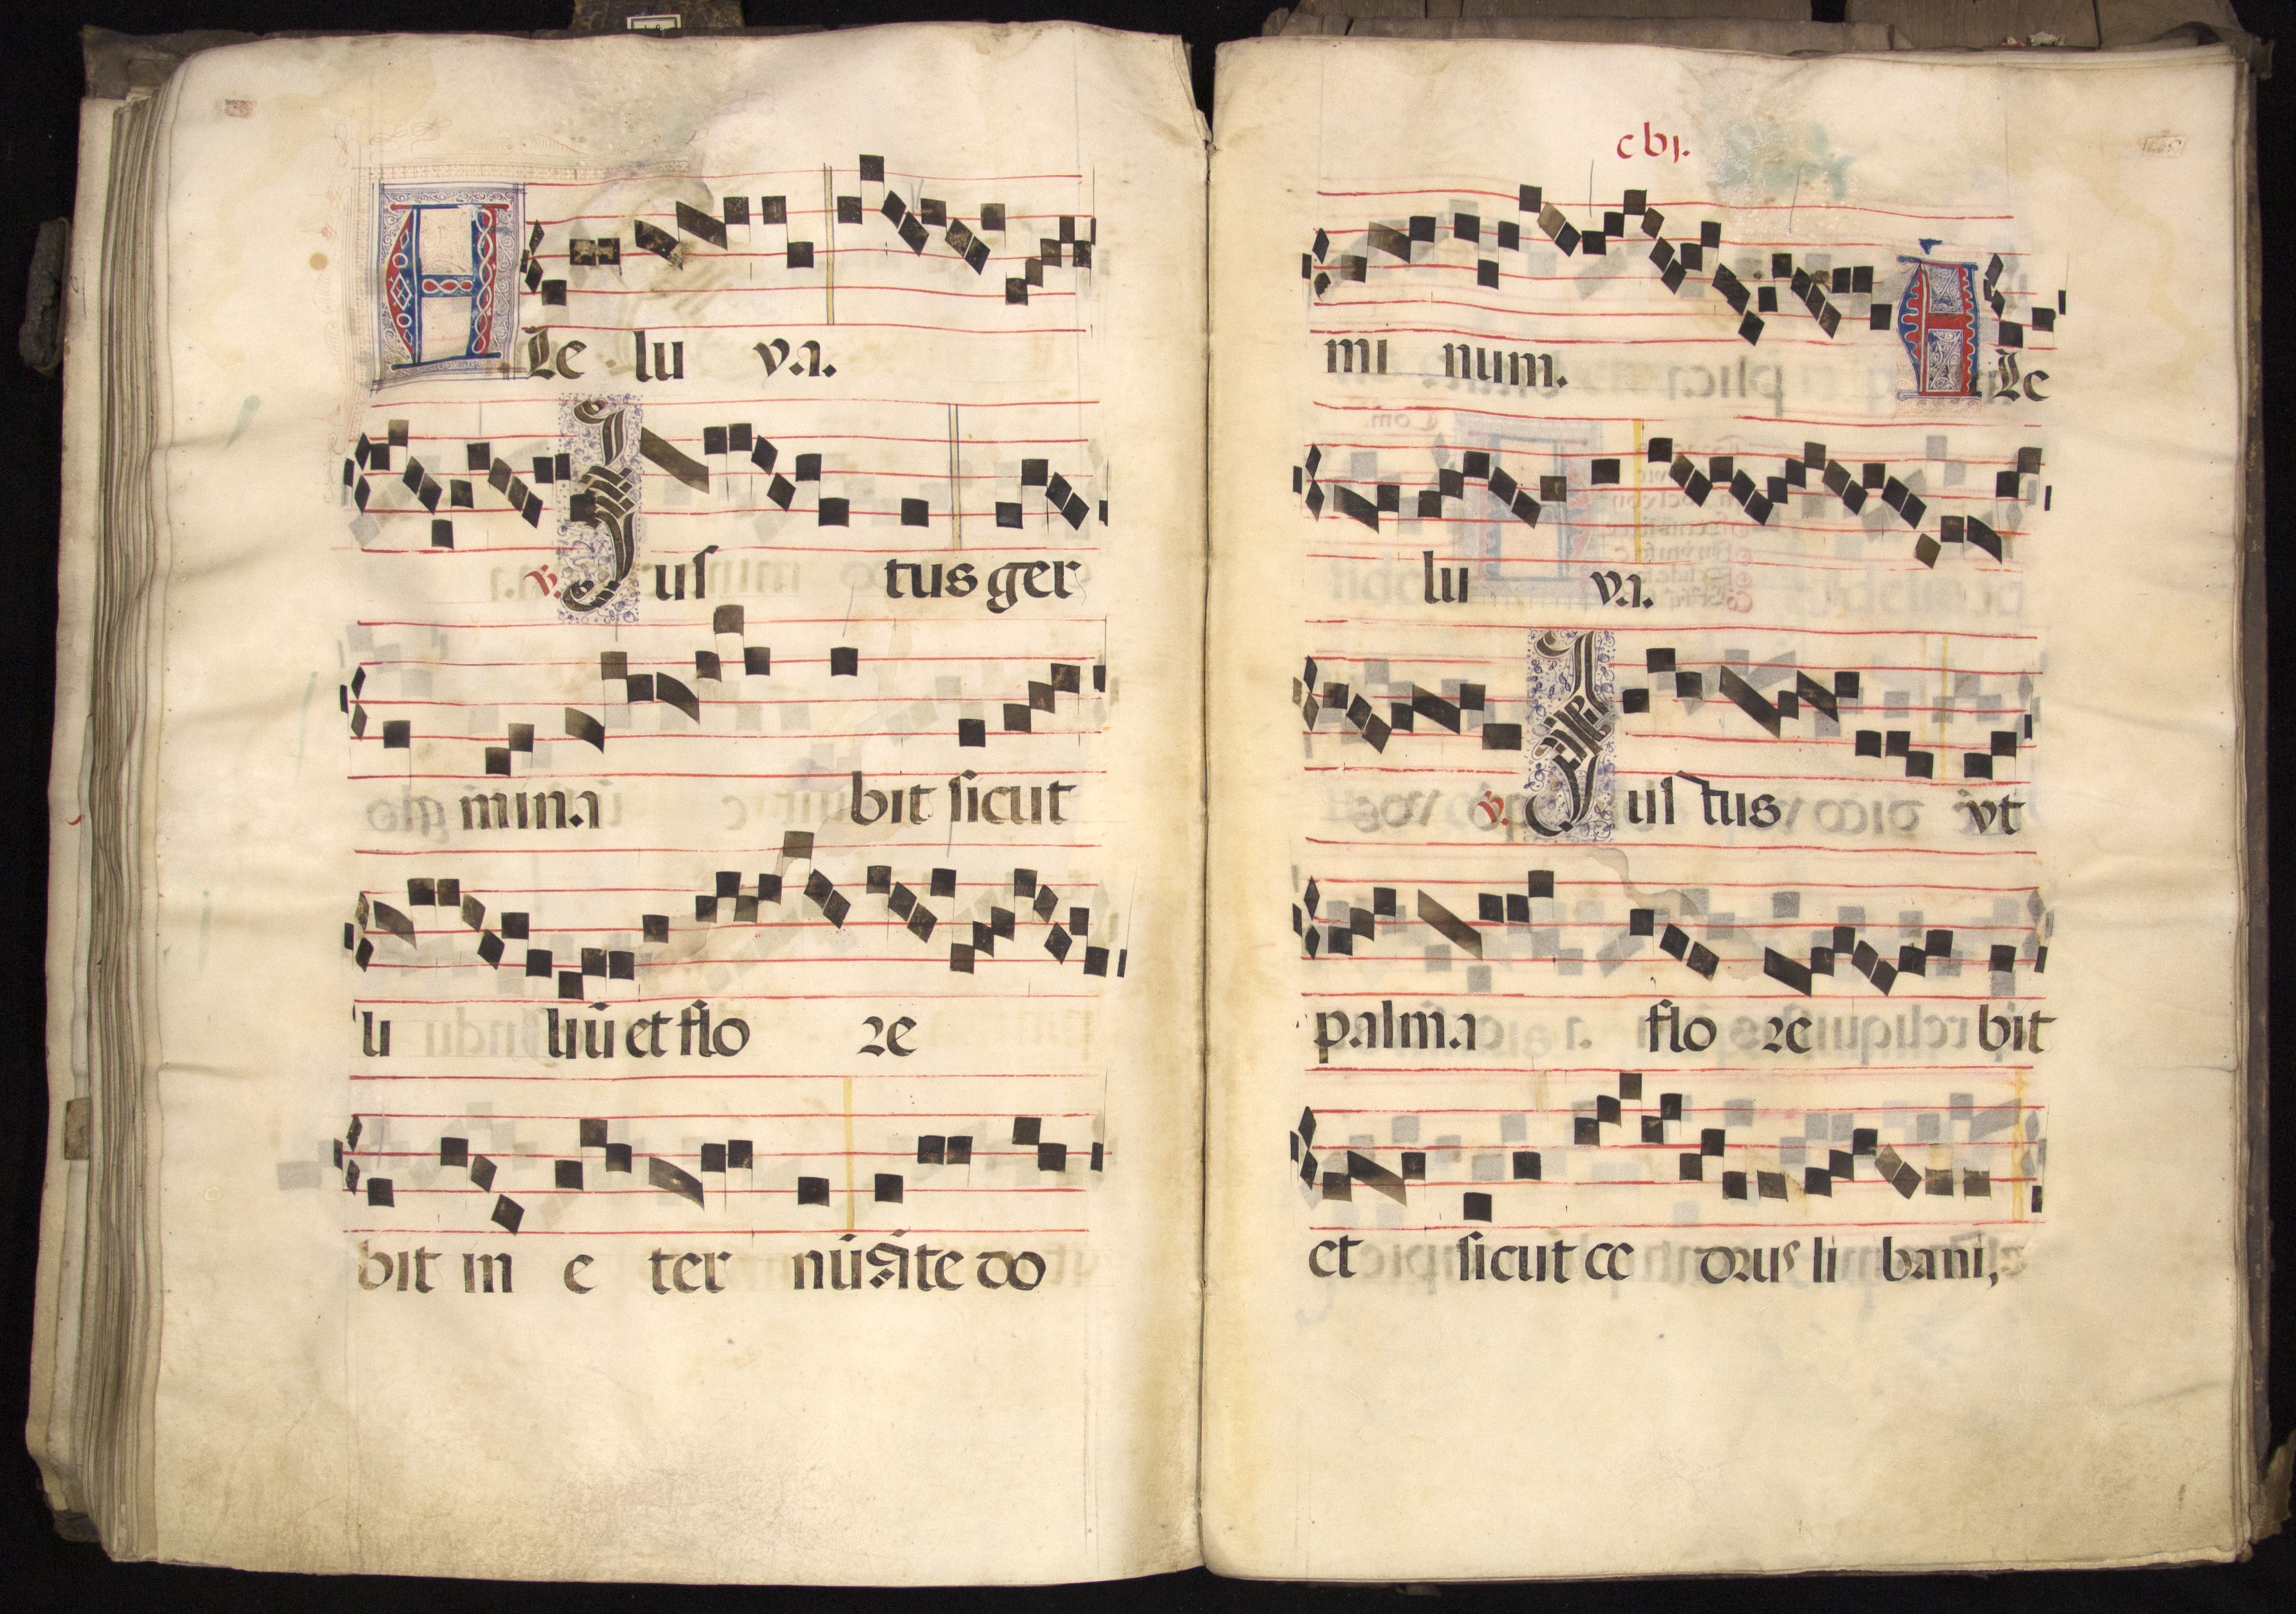 Alle lu ya.
℣. Jus tus ger
mina bit sicut
li liū et flo re
bit in e ter nū. āte do
cvj.
mi num. Alle
lu ya.
℣. Jus tus vt
palma flo re bit
et sicut ce drus li bani,